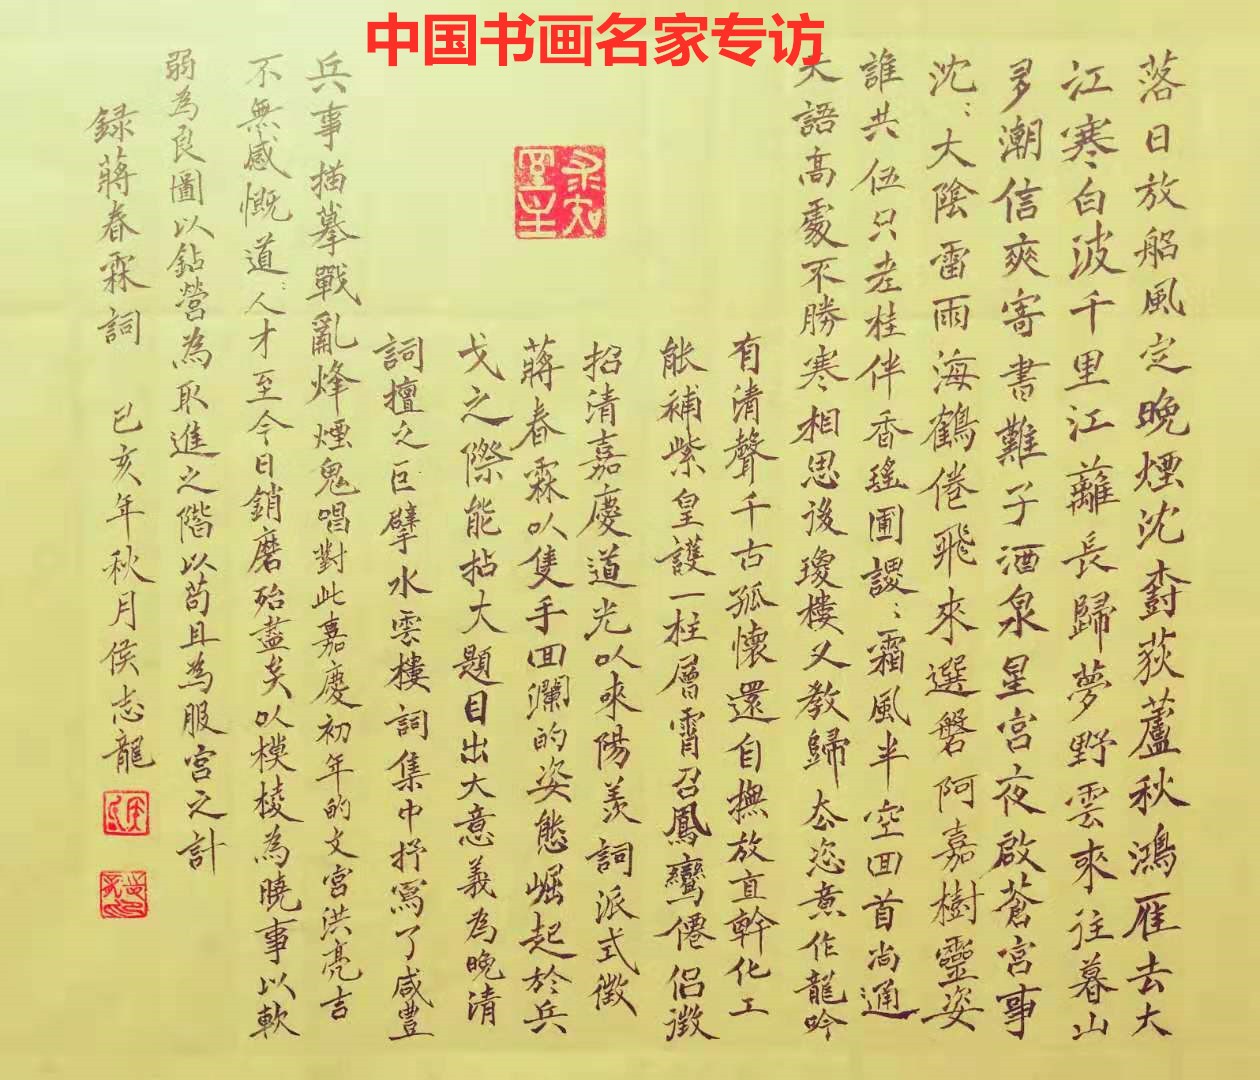 中国书画名家专访
落日放船風定晚煙沈樹荻蘆秋鴻雁去大
江寒白波千里江蘺長歸夢野雲來往暮山
多潮信爽寄書難子酒泉星宮夜啟蒼宮事
沈：大陰雷雨海鶴倦飛來選磐阿嘉樹靈姿
誰共伍只老桂伴香瑤圃謖：霜風半空回首尚通
天語高處不勝寒相思後瓊樓又教歸去恣意作龍吟
有清聲千古孤懷還自撫放直幹化工
能補紫皇護一柱層霄召鳳鸞僊侶徵
招清嘉慶道光以來陽羨詞派式微
蔣春霖以隻手回瀾的姿態崛起於兵
戈之際能拈大題目出大意義為晚清
詞擅之巨擘水雲樓詞集中抒寫了咸豐
兵事描摹戰亂烽煙鬼唱對此嘉慶初年的文宮洪亮吉
不無感慨道：人才至今日銷磨殆盡矣以模棱為曉事以軟
弱為良圖以鉆營為取進之階以苟且為服宮之計
録蔣春霖詞 己亥年秋月侯志龍